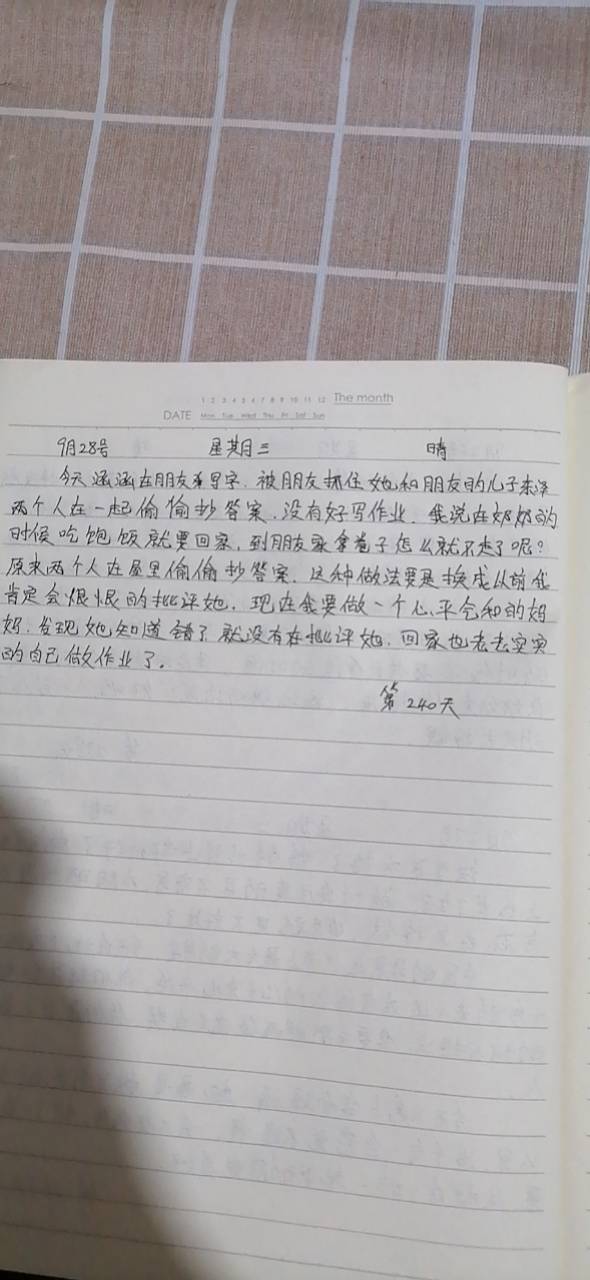 1 2 3 4 5 6 7 8 9 10 11 12 The month
DATE Mon Tue Wed Thu Fri Sat Sun
9月28号 星期三 晴
今天涵涵在朋友家写字，被朋友抓住她和朋友的儿子东泽
两个人在一起偷偷抄答案，没有好写作业，我说在奶奶的
时候吃饱饭就要回家，到朋友家拿卷子怎么就不走了呢？
原来两个人在屋里偷偷抄答案，这种做法要是换成从前我
肯定会恨恨的批评她，现在我要做一个心平气和的妈
妈，发现她知道错了就没有在批评她，回家也老老实实
的自己做作业了。
第240天